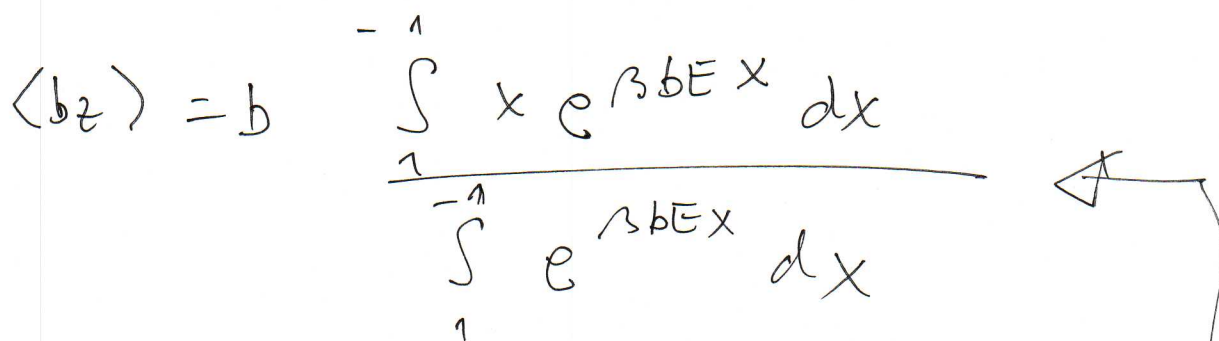 ⟨bz⟩ = b ∫₁⁻¹ x e^{βbEx} dx
∫₁⁻¹ e^{βbEx} dx